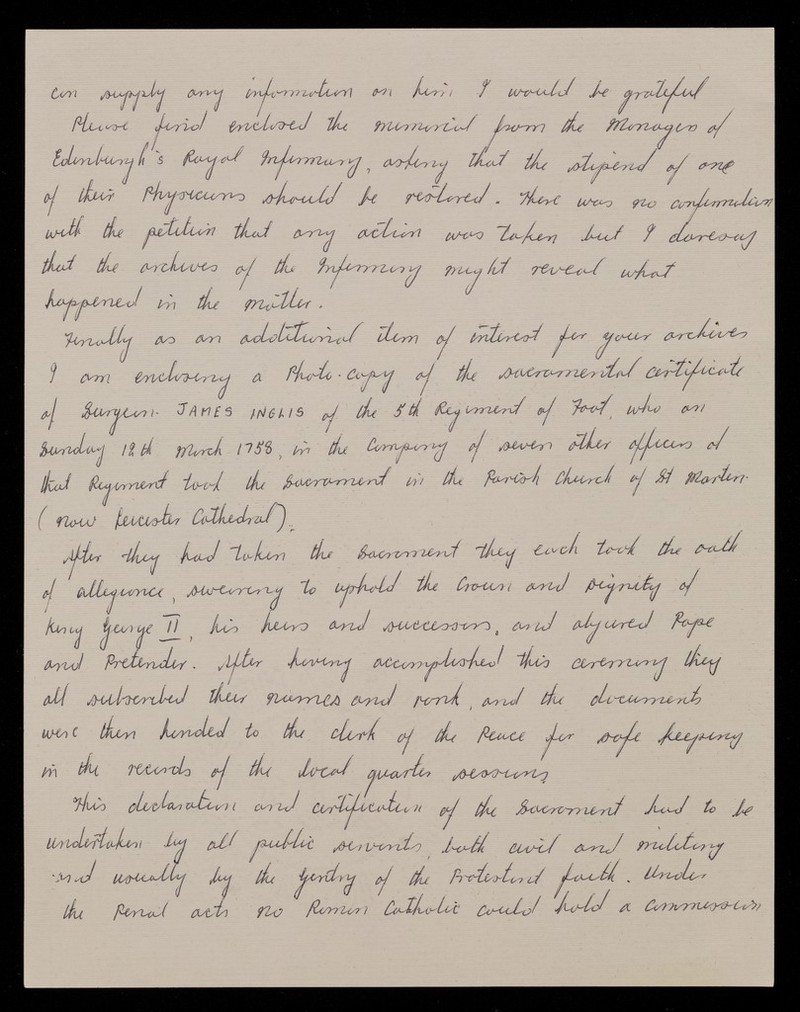 can supply any information on him I would be grateful
Please find enclosed the memorial from the Managers of
Edinburgh's Royal Infirmary, asking that the stipend of one
of their Physicians should be restored. There was no confirmation
with the petition that any action was taken but I daresay
that the archives of the Infirmary might reveal what
happened in the matter.
Finally as an additional item of interest for your archives
I am enclosing a Photo-copy of the sacramental certificate
of Surgeon. JAMES INGLIS of the 5th Regiment of Foot, who on
Sunday 12th March 1758, in the Company of seven other officers of
that Regiment took the Sacrament in the Parish Church of St Marten.
(now Leicester Cathedral).
After they had taken the Sacrament they each took the oath
of allegiance, swearing to uphold the Crown and Dignity of
King George II, his heirs and successors, and abjured Pope
and Pretender. After having accomplished this ceremony they
all subscribed their names and rank, and the documents
were then handed to the clerk of the Peace for safe keeping
in the records of the local quarter sessions
This declaration and certification of the Sacrament had to be
undertaken by all public servants, both civil and military
and usually by the gentry of the Protestant faith. Under
the Penal acts no Roman Catholic could hold a commission